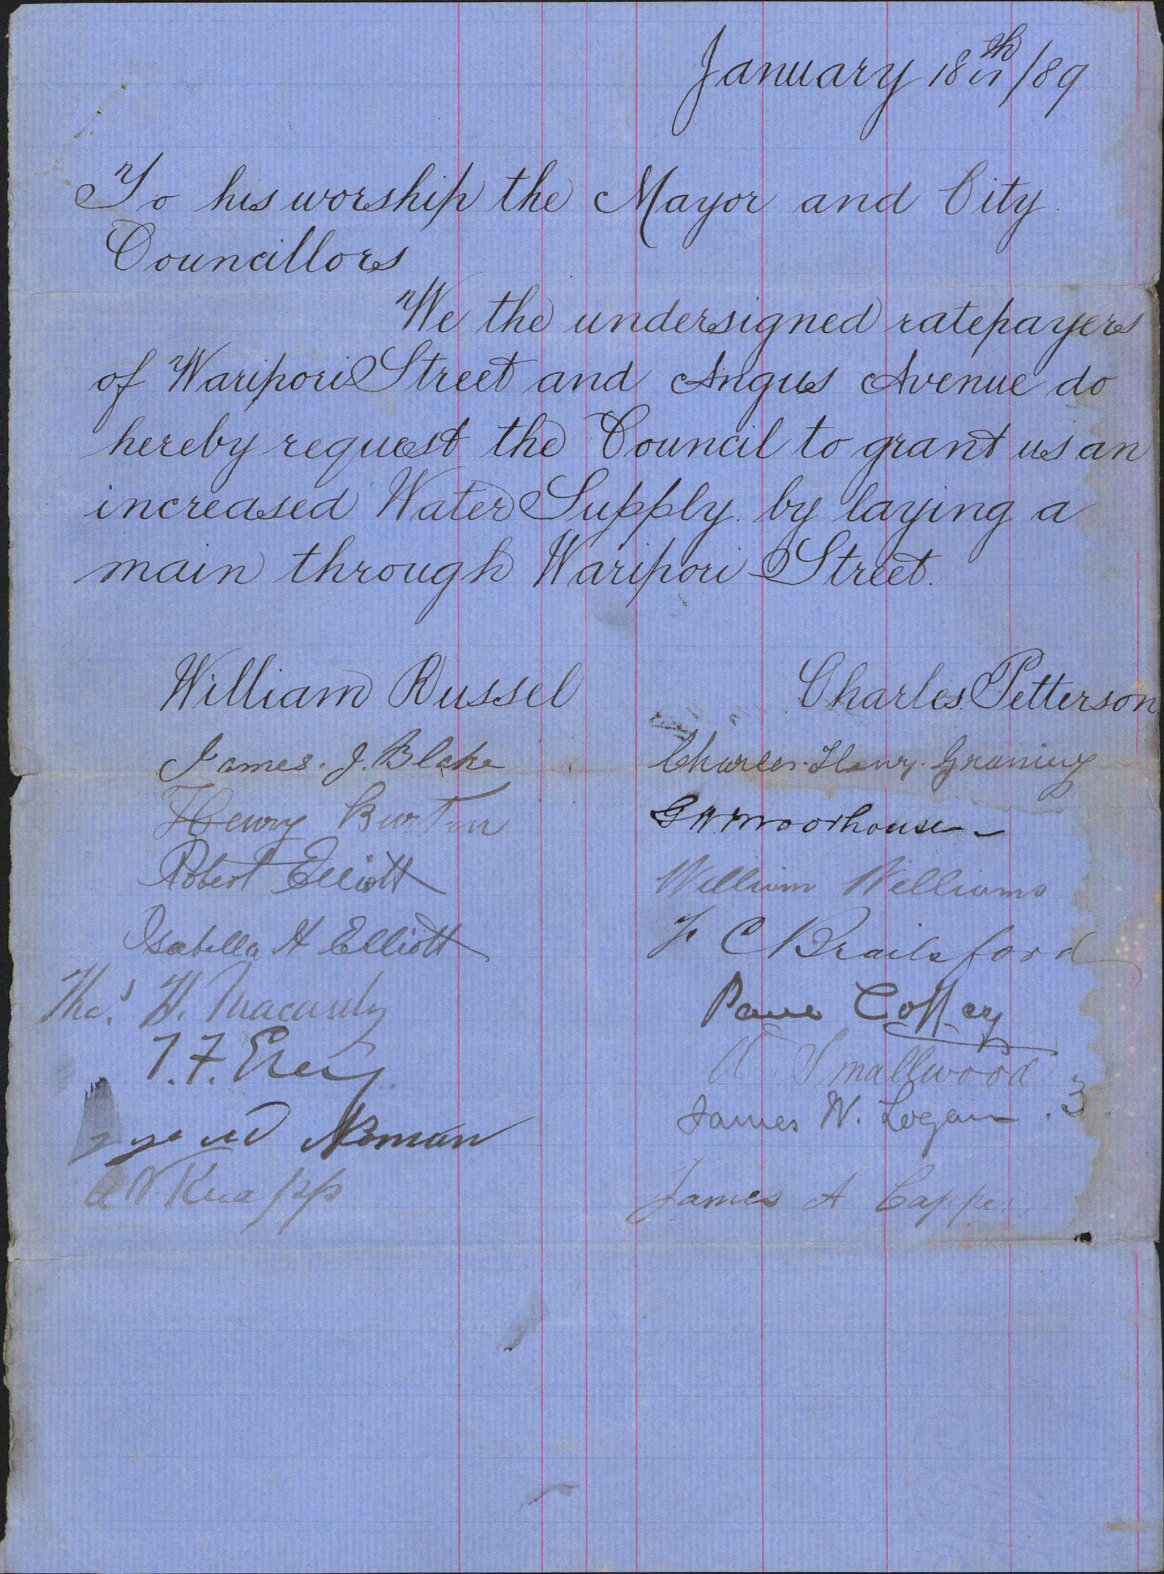 January 18th/89
To his worship the Mayor and City
Councillors
We the undersigned ratepayers
of Waripori Street and Angus Avenue do
hereby request the Council to grant us an
increased Water Supply by laying a
main through Waripori Street.
William Russel Charles Petterson
James. J. Blake Charles Henry Graning
Henry Burton G W Moorhouse
Robert Elliott William Williams
Isabella H Elliott F C Brailsford
Thos. H. Macarthy Paul Coffey
T. F. Smallwood
Norman James W. Logan . 3.
Knapp James A Capper